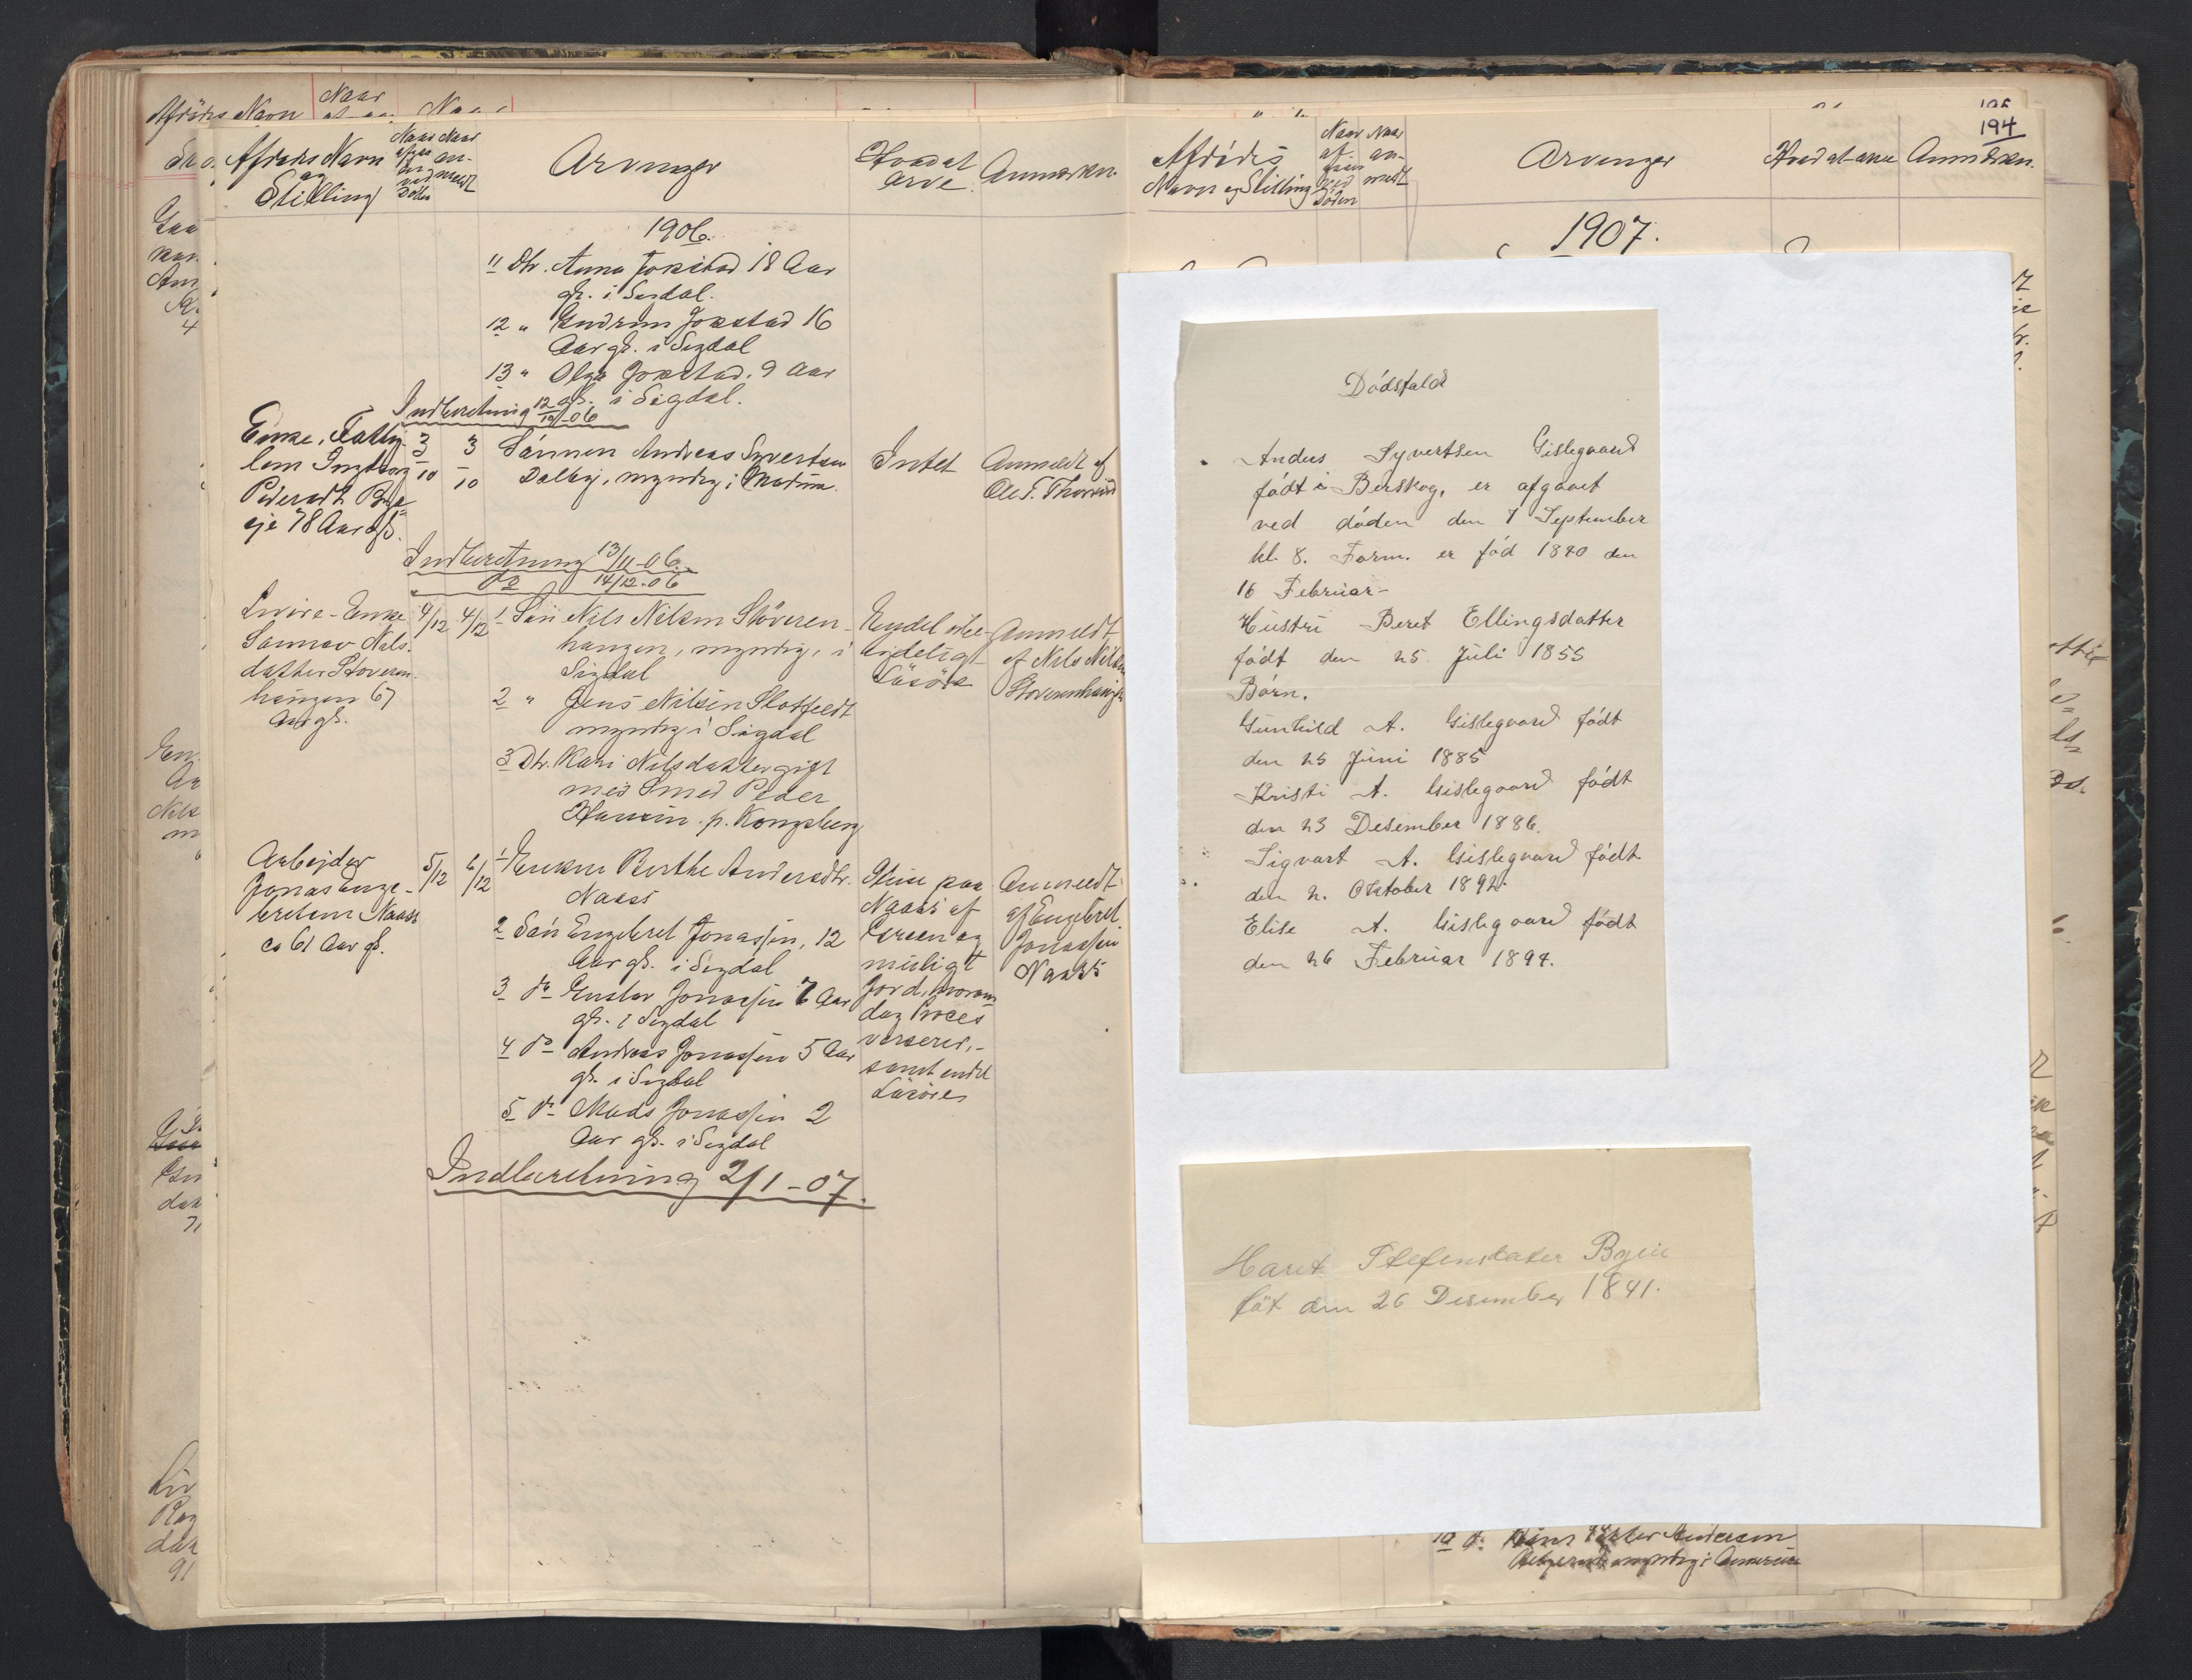 Afdødes Navn
og
Stilling
Naar
afgaaet
ved
Døden
Naar
an-
meldt
Arvinger
Hvad at
arve
Anmærkn.
1906.
11 Dtr. Anna Jokstad 18 Aar
gl. i Sigdal.
12 " Gudrun Jokstad 16
Aar gl. i Sigdal
13 " Olga Jokstad, 9 Aar
gl. i Sigdal.
Indberetning 12/10-06
Enke, Fattig-
lem Ingeborg
Pedersdtr.
eje 78 Aar gl.
3/10
3/10
Sønnen Andreas Syvertsen
Dalby, myndig i Modum.
Intet
Anmeldt af
Ole T.
Indberetning 13/11-06.
do 14/12-06
Enke
Nils-
datter Støveren-
haugen 67
Aar gl.
4/12
4/12
1 Søn Nils Nilsen Støveren-
haugen, myndig, i
Sigdal
2 " Jens Nilsen Slotfeldt
myndig i Sigdal
3 Dtr. Kari Nilsdatter gift
med Smed Peder
Hansen p. Kongsberg
Endel ube-
tydeligt
Løsøre
Anmeldt
af Nils Nilsen
Støverenhaugen
Arbejder
Jonas Enge-
bretsen Naass
ca 61 Aar gl.
5/12
6/12
1 Enken Berthe Andersdtr.
Naass
2 Søn Engebret Jonassen, 12
Aar gl. i Sigdal
3 do Gustav Jonassen 7 Aar
gl. i Sigdal
4 do Andreas Jonassen 5 Aar
gl. i Sigdal
5 do Mads Jonassen 2
Aar gl. i Sigdal
Huse paa
Naass af
Green og
muligt
Jord, hvorom
dog Proces
verserer,-
samt endel
Løsøre
Anmeldt
af Engebret
Jonassen
Naass
Indberetning 2/1-07.
194
Afdødes
Navn og Stilling
Naar
af-
gaaet
ved
Døden
Naar
an-
meldt
Arvinger
Hvad at arve
Anmærkn.
1907.
Dødsfald
Anders Syvertsen Gislegaard
født i Berskog, er afgaaet
ved døden den 7 September
kl. 8. Form. er fød 1840 den
16 Februar-
Hustru Beret Ellingsdatter
født den 25 Juli 1855
Børn.
Gunhild A. Gislegaard født
den 25 Juni 1885
Kristi A. Gislegaard født
den 23 Desember 1886.
Sigvart A. Gislegaard født
den 2. Oktober 1892.
Elise A. Gislegaard født
den 26 Februar 1894.
Marit Stefensdater Byeie
føt den 26 Desember 1841.
10 do Hans Andersen
myndig i Amerika